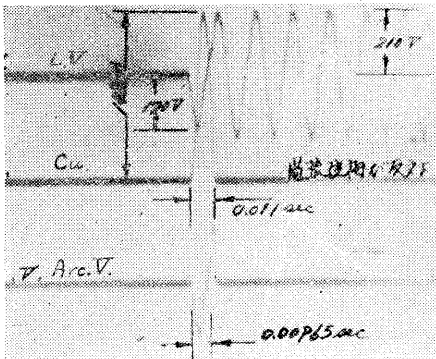 L.V
210V
170V
Cu.
0.011 sec
V. Arc.V.
0.00965 sec